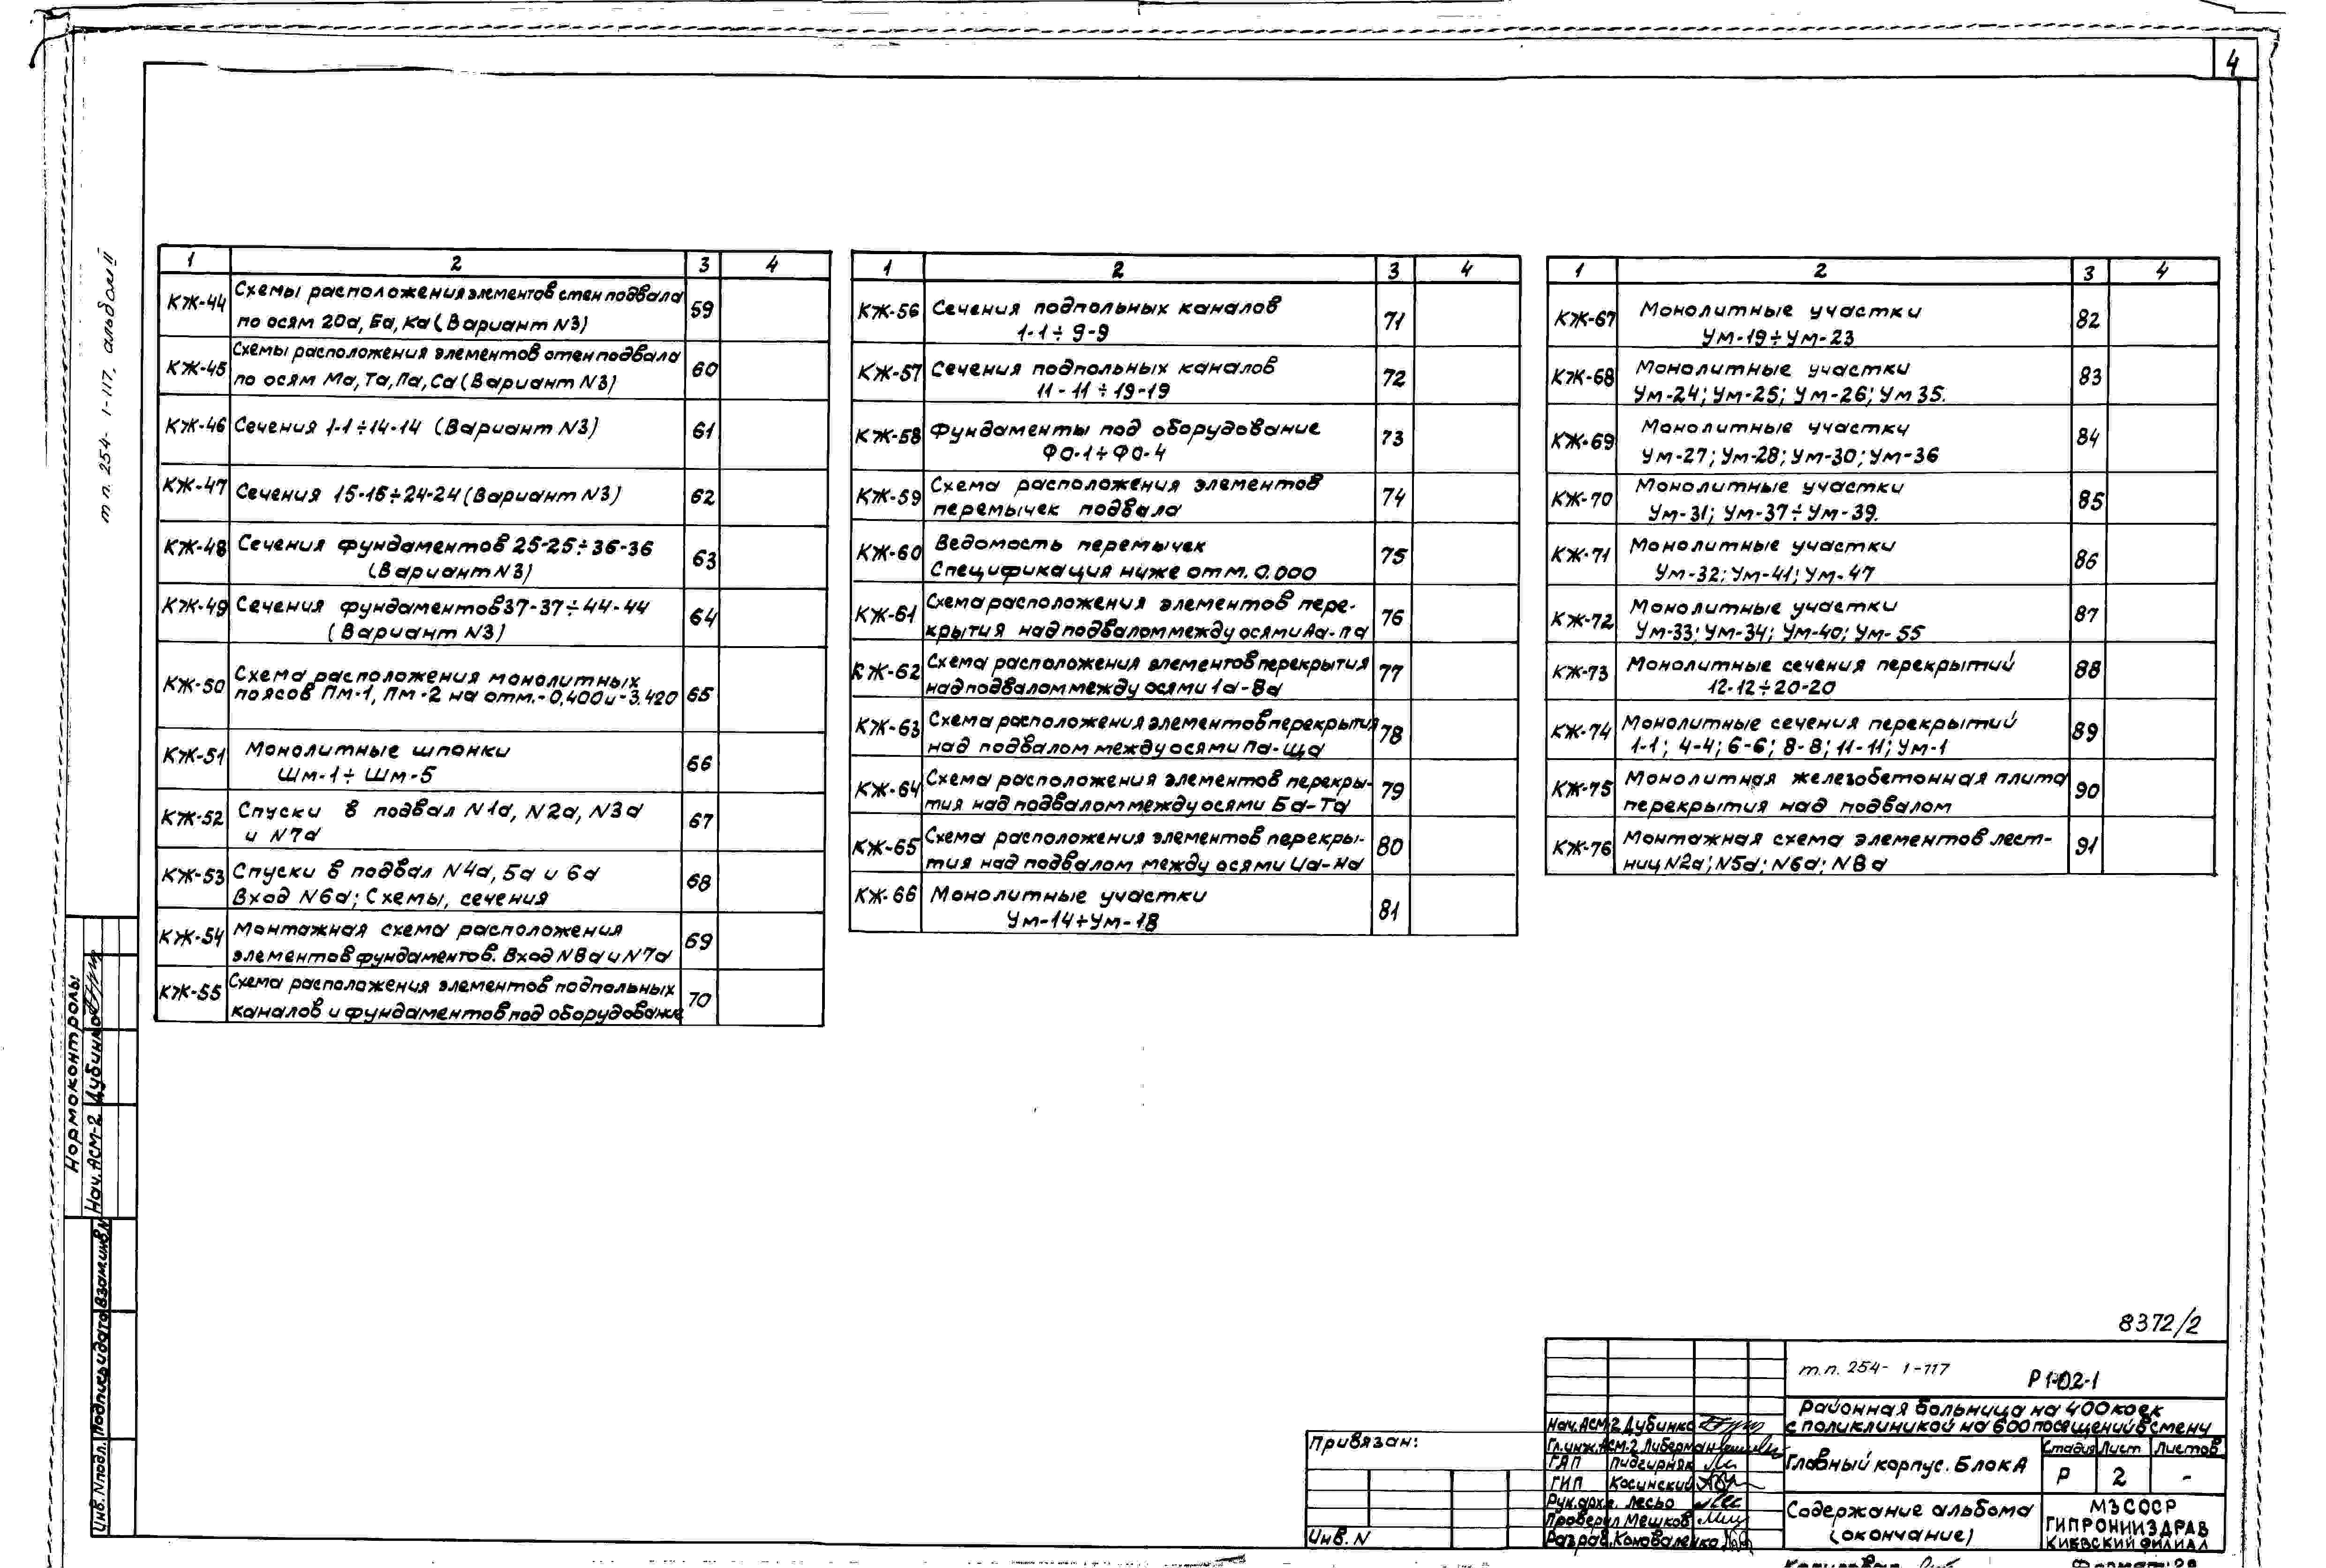 4
т п. 254- 1-117, альбом II
1 2 3 4
КЖ-44 Схемы расположения элементов стен подвала 59
по осям 20а, Ба, Ка (Вариант N3)
КЖ-45 Схемы расположения элементов стен подвала 60
по осям Ма, Та, Па, Са (Вариант N3)
КЖ-46 Сечения 1-1÷14-14 (Вариант N3) 61
КЖ-47 Сечения 15-15÷24-24 (Вариант N3) 62
КЖ-48 Сечения фундаментов 25-25÷36-36 63
(Вариант N3)
КЖ-49 Сечения фундаментов 37-37÷44-44 64
(Вариант N3)
КЖ-50 Схема расположения монолитных 65
поясов Пм-1, Пм-2 на отм.-0,400 и -3.420
КЖ-51 Монолитные шпонки 66
Шм-1÷ Шм-5
КЖ-52 Спуски в подвал N1а, N2а, N3а 67
и N7а
КЖ-53 Спуски в подвал N4а, 5а и 6а 68
Вход N6а; Схемы, сечения
КЖ-54 Монтажная схема расположения 69
элементов фундаментов. Вход N8а и N7а
КЖ-55 Схема расположения элементов подпольных 70
каналов и фундаментов под оборудование
1 2 3 4
КЖ-56 Сечения подпольных каналов 71
1-1÷9-9
КЖ-57 Сечения подпольных каналов 72
11-11÷19-19
КЖ-58 Фундаменты под оборудование 73
ФО-1÷ФО-4
КЖ-59 Схема расположения элементов 74
перемычек подвала
КЖ-60 Ведомость перемычек 75
Спецификация ниже отм. 0.000
КЖ-61 Схема расположения элементов пере- 76
крытия над подвалом между осями Аа-Па
КЖ-62 Схема расположения элементов перекрытия 77
над подвалом между осями 1а-8а
КЖ-63 Схема расположения элементов перекрытия 78
над подвалом между осями Па-Ща
КЖ-64 Схема расположения элементов перекры- 79
тия над подвалом между осями Ба-Та
КЖ-65 Схема расположения элементов перекры- 80
тия над подвалом между осями Иа-На
КЖ-66 Монолитные участки 81
Ум-14÷Ум-18
1 2 3 4
КЖ-67 Монолитные участки 82
Ум-19÷Ум-23
КЖ-68 Монолитные участки 83
Ум-24; Ум-25; Ум-26; Ум 35.
КЖ-69 Монолитные участки 84
Ум-27; Ум-28; Ум-30; Ум-36
КЖ-70 Монолитные участки 85
Ум-31; Ум-37÷Ум-39.
КЖ-71 Монолитные участки 86
Ум-32; Ум-41; Ум-47
КЖ-72 Монолитные участки 87
Ум-33; Ум-34; Ум-40; Ум-55
КЖ-73 Монолитные сечения перекрытий 88
12-12÷20-20
КЖ-74 Монолитные сечения перекрытий 89
1-1; 4-4; 6-6; 8-8; 11-11; Ум-1
КЖ-75 Монолитная железобетонная плита 90
перекрытия над подвалом
КЖ-76 Монтажная схема элементов лест- 91
ниц N2а; N5а; N6а; N8а
Нормоконтроль:
Нач. АСМ-2 Дубинко
Инв. N подл. Подпись и дата Взам. инв. N
8372/2
т.п. 254- 1-117
Р1-02-1
Районная больница на 400 коек
с поликлиникой на 600 посещений в смену
Главный корпус. Блок А
Стадия Лист Листов
Р 2 -
Содержание альбома
(окончание)
МЗ СССР
ГИПРОНИИЗДРАВ
КИЕВСКИЙ ФИЛИАЛ
Нач. АСМ-2 Дубинко
Гл. инж. АСМ-2 Либерман
ГАП Пидгирняк
ГИП Косинский
Рук. арх. г. Лесьо
Проверил Мешков
Разраб. Коноваленко
Привязан:
Инв. N
Копировал
Формат: 22